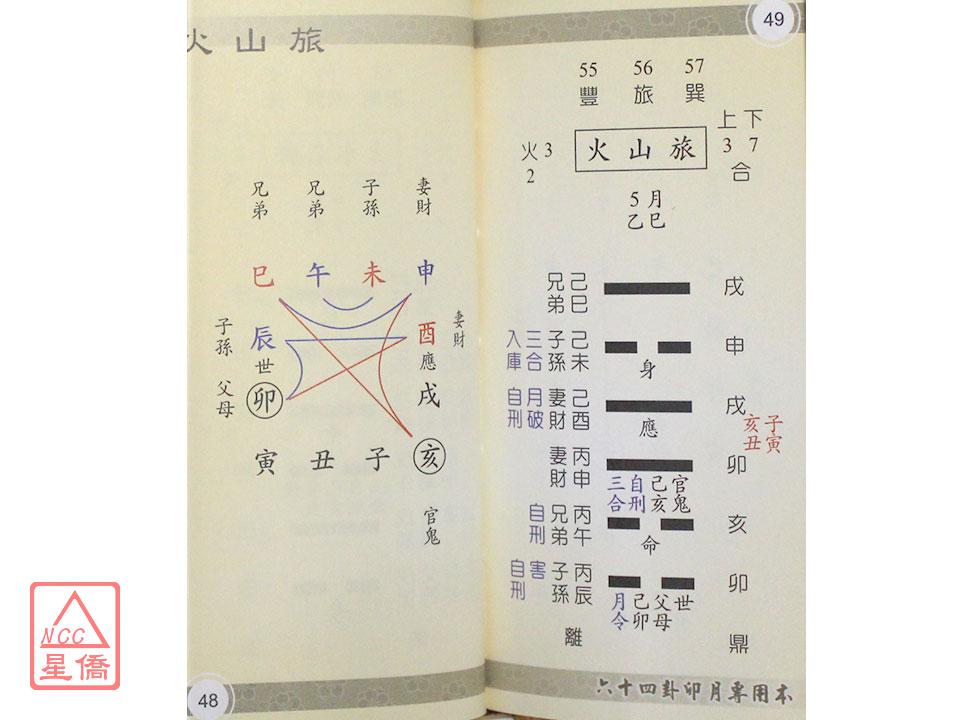 火山旅
兄弟 兄弟 子孫 妻財
巳 午 未 申
子孫 辰 世 酉 應 妻財
父母 卯 戌
寅 丑 子 亥
官鬼
NCC
星僑
48
49
55 56 57
豐 旅 巽
上 下
3 7
合
火 3
2
火山旅
5月
乙巳
兄弟 己巳 戌
入庫 三合 子孫 己未 申
身
自刑 月破 妻財 己酉 戌
應
亥丑 子寅
妻財 丙申 卯
三合 自刑 己亥 官鬼
自刑 兄弟 丙午 亥
命
自刑 害 子孫 丙辰 卯
月令 己卯 父母 世
離 鼎
六十四卦卯月專用本